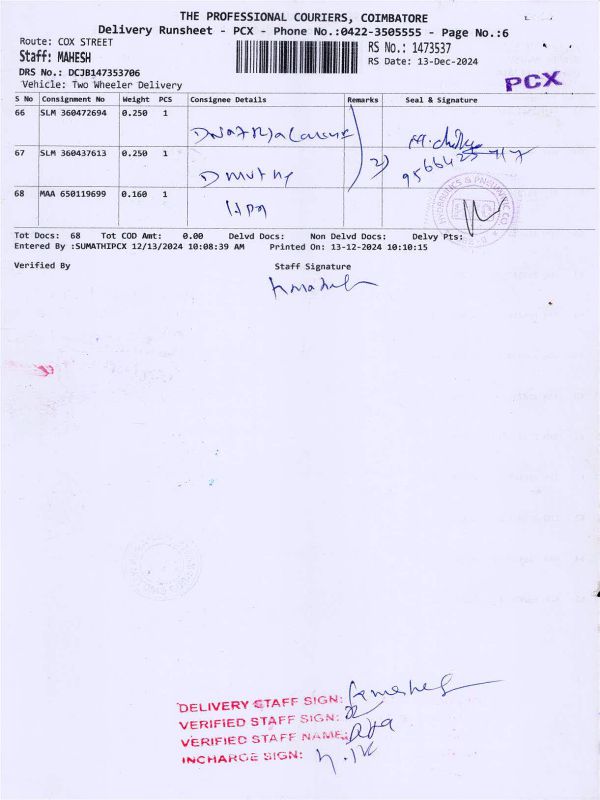 THE PROFESSIONAL COURIERS, COIMBATORE
Delivery Runsheet - PCX - Phone No.:0422-3505555 - Page No.:6
Route: COX STREET
RS No.: 1473537
Staff: MAHESH
RS Date: 13-Dec-2024
DRS No.: DCJB147353706
Vehicle: Two Wheeler Delivery
PCX
S No Consignment No Weight PCS Consignee Details Remarks Seal & Signature
66 SLM 360472694 0.250 1
67 SLM 360437613 0.250 1
2)
68 MAA 650119699 0.160 1
Tot Docs: 68 Tot COD Amt: 0.00 Delvd Docs: Non Delvd Docs: Delvy Pts:
Entered By :SUMATHIPCX 12/13/2024 10:08:39 AM Printed On: 13-12-2024 10:10:15
Verified By Staff Signature
DELIVERY STAFF SIGN:
VERIFIED STAFF SIGN:
VERIFIED STAFF NAME:
INCHARGE SIGN: